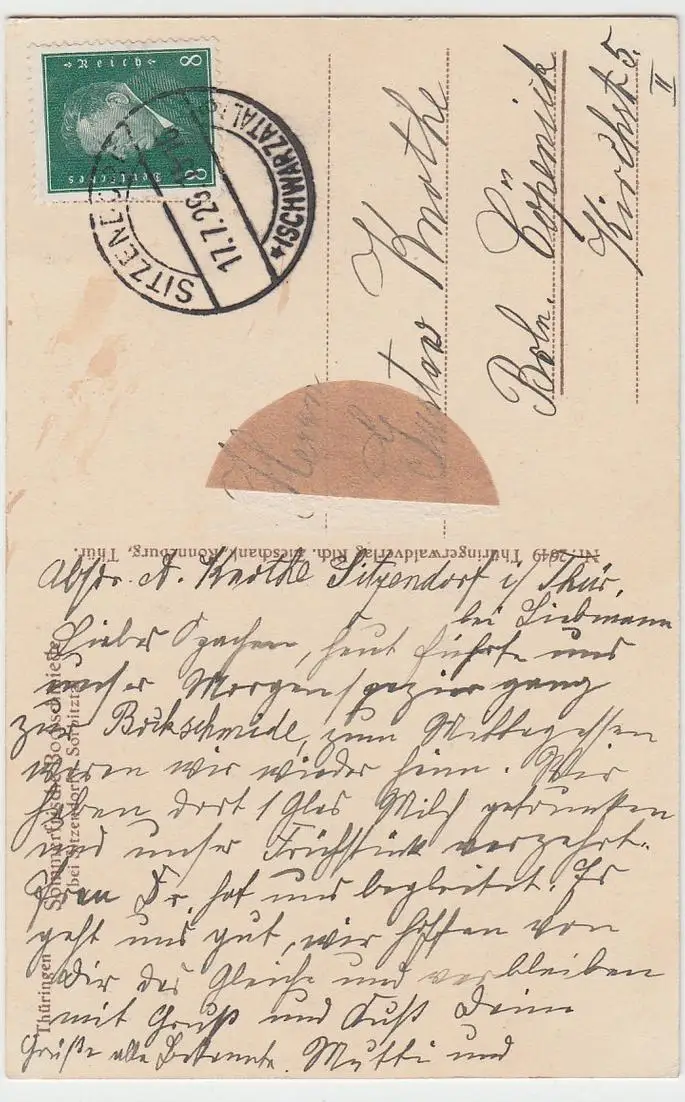 8 Reich 8
Deutsches
SITZENDORF
17.7.26
(SCHWARZATAL)
Herrn
Gustav Knothe
Bln. Cöpenick
Kirchstr 5.
II
Nr. 2649 Thüringerwaldverlag Rich. Zieschank, Ronneburg, Thür.
Thüringen
Sommerfrische Bockschmiede
bei Sitzendorf Sorbitztal
Absdr. A. Knothe Sitzendorf i/ Thür,
bei Liebmann
Liebes Opachen, heut führte uns
unser Morgenspaziergang
zur Bockschmide, zum Mittagessen
waren wir wieder heim. Wir
haben dort 1 Glas Milch getrunken
und unser Frühstück verzehrt.
Frau Dr. hat uns begleitet. Es
geht uns gut, wir hoffen von
Dir das Gleiche und verbleiben
mit Gruß und Kuß Deine
Grüße alle Bekannte. Mutti und